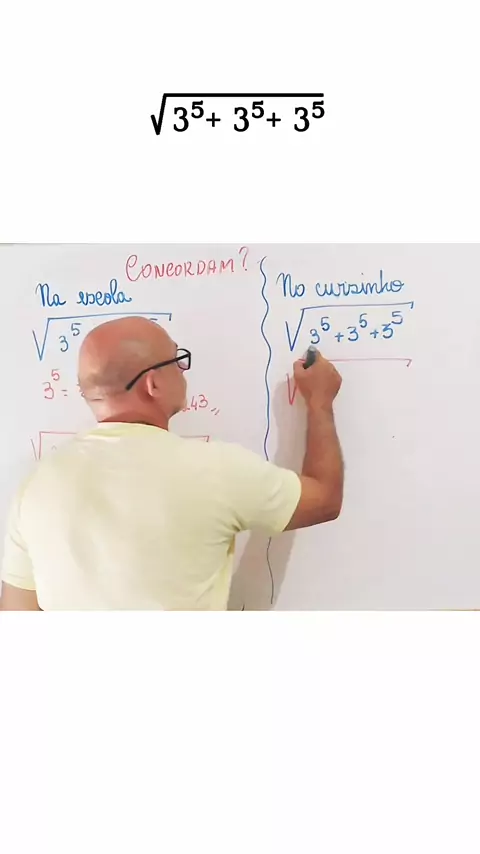 √3⁵+ 3⁵+ 3⁵
CONCORDAM?
Na escola
√3⁵
3⁵ =
43,,
No cursinho
√3⁵+3⁵+3⁵
√